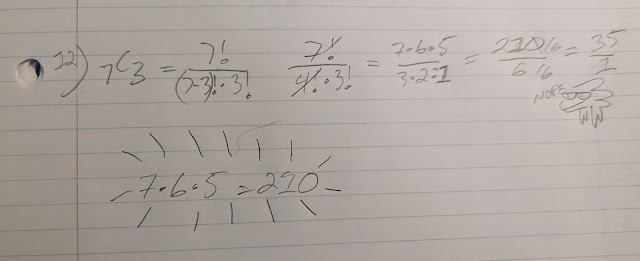 12) ₇C₃ = 7!/(7-3)!·3! 7!/4!·3! = 7·6·5/3·2·1 = 210/6 /6 /6 = 35/1
NOPE
7·6·5 = 210